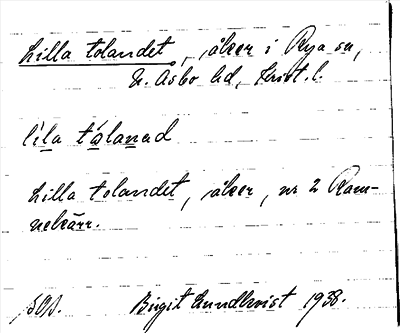 Lilla tolandet, åker i Rya sn,
N. Åsbo hd, Krist. l.
lila tålanad
Lilla tolandet, åker, nr 2 Ram-
nekärr.
Birgit Lundkvist 1938.